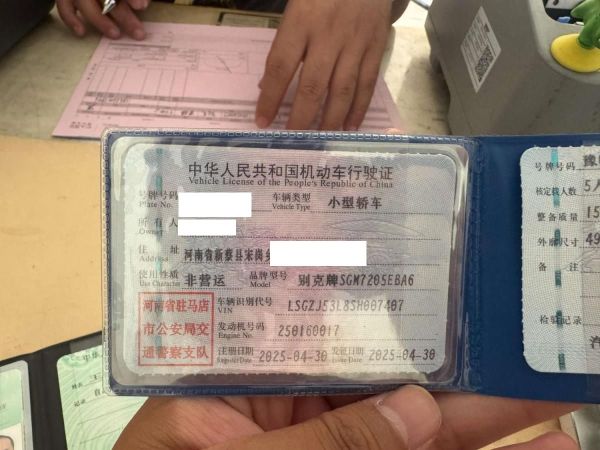 中华人民共和国机动车行驶证
Vehicle License of the People's Republic of China
号牌号码
Plate No.
车辆类型 小型轿车
Vehicle Type
所有人
Owner
住址 河南省新蔡县宋岗乡
Address
使用性质 非营运
Use Character
品牌型号 别克牌SGM7205EBA6
Model
河南省驻马店
市公安局交
通警察支队
车辆识别代号 LSGZJ53L8SH007407
VIN
发动机号码 250160017
Engine No.
注册日期 2025-04-30
Register Date
发证日期 2025-04-30
Issue Date
号牌号码 豫
核定载人数 5人
整备质量 15
外廓尺寸 49
备注
检验记录